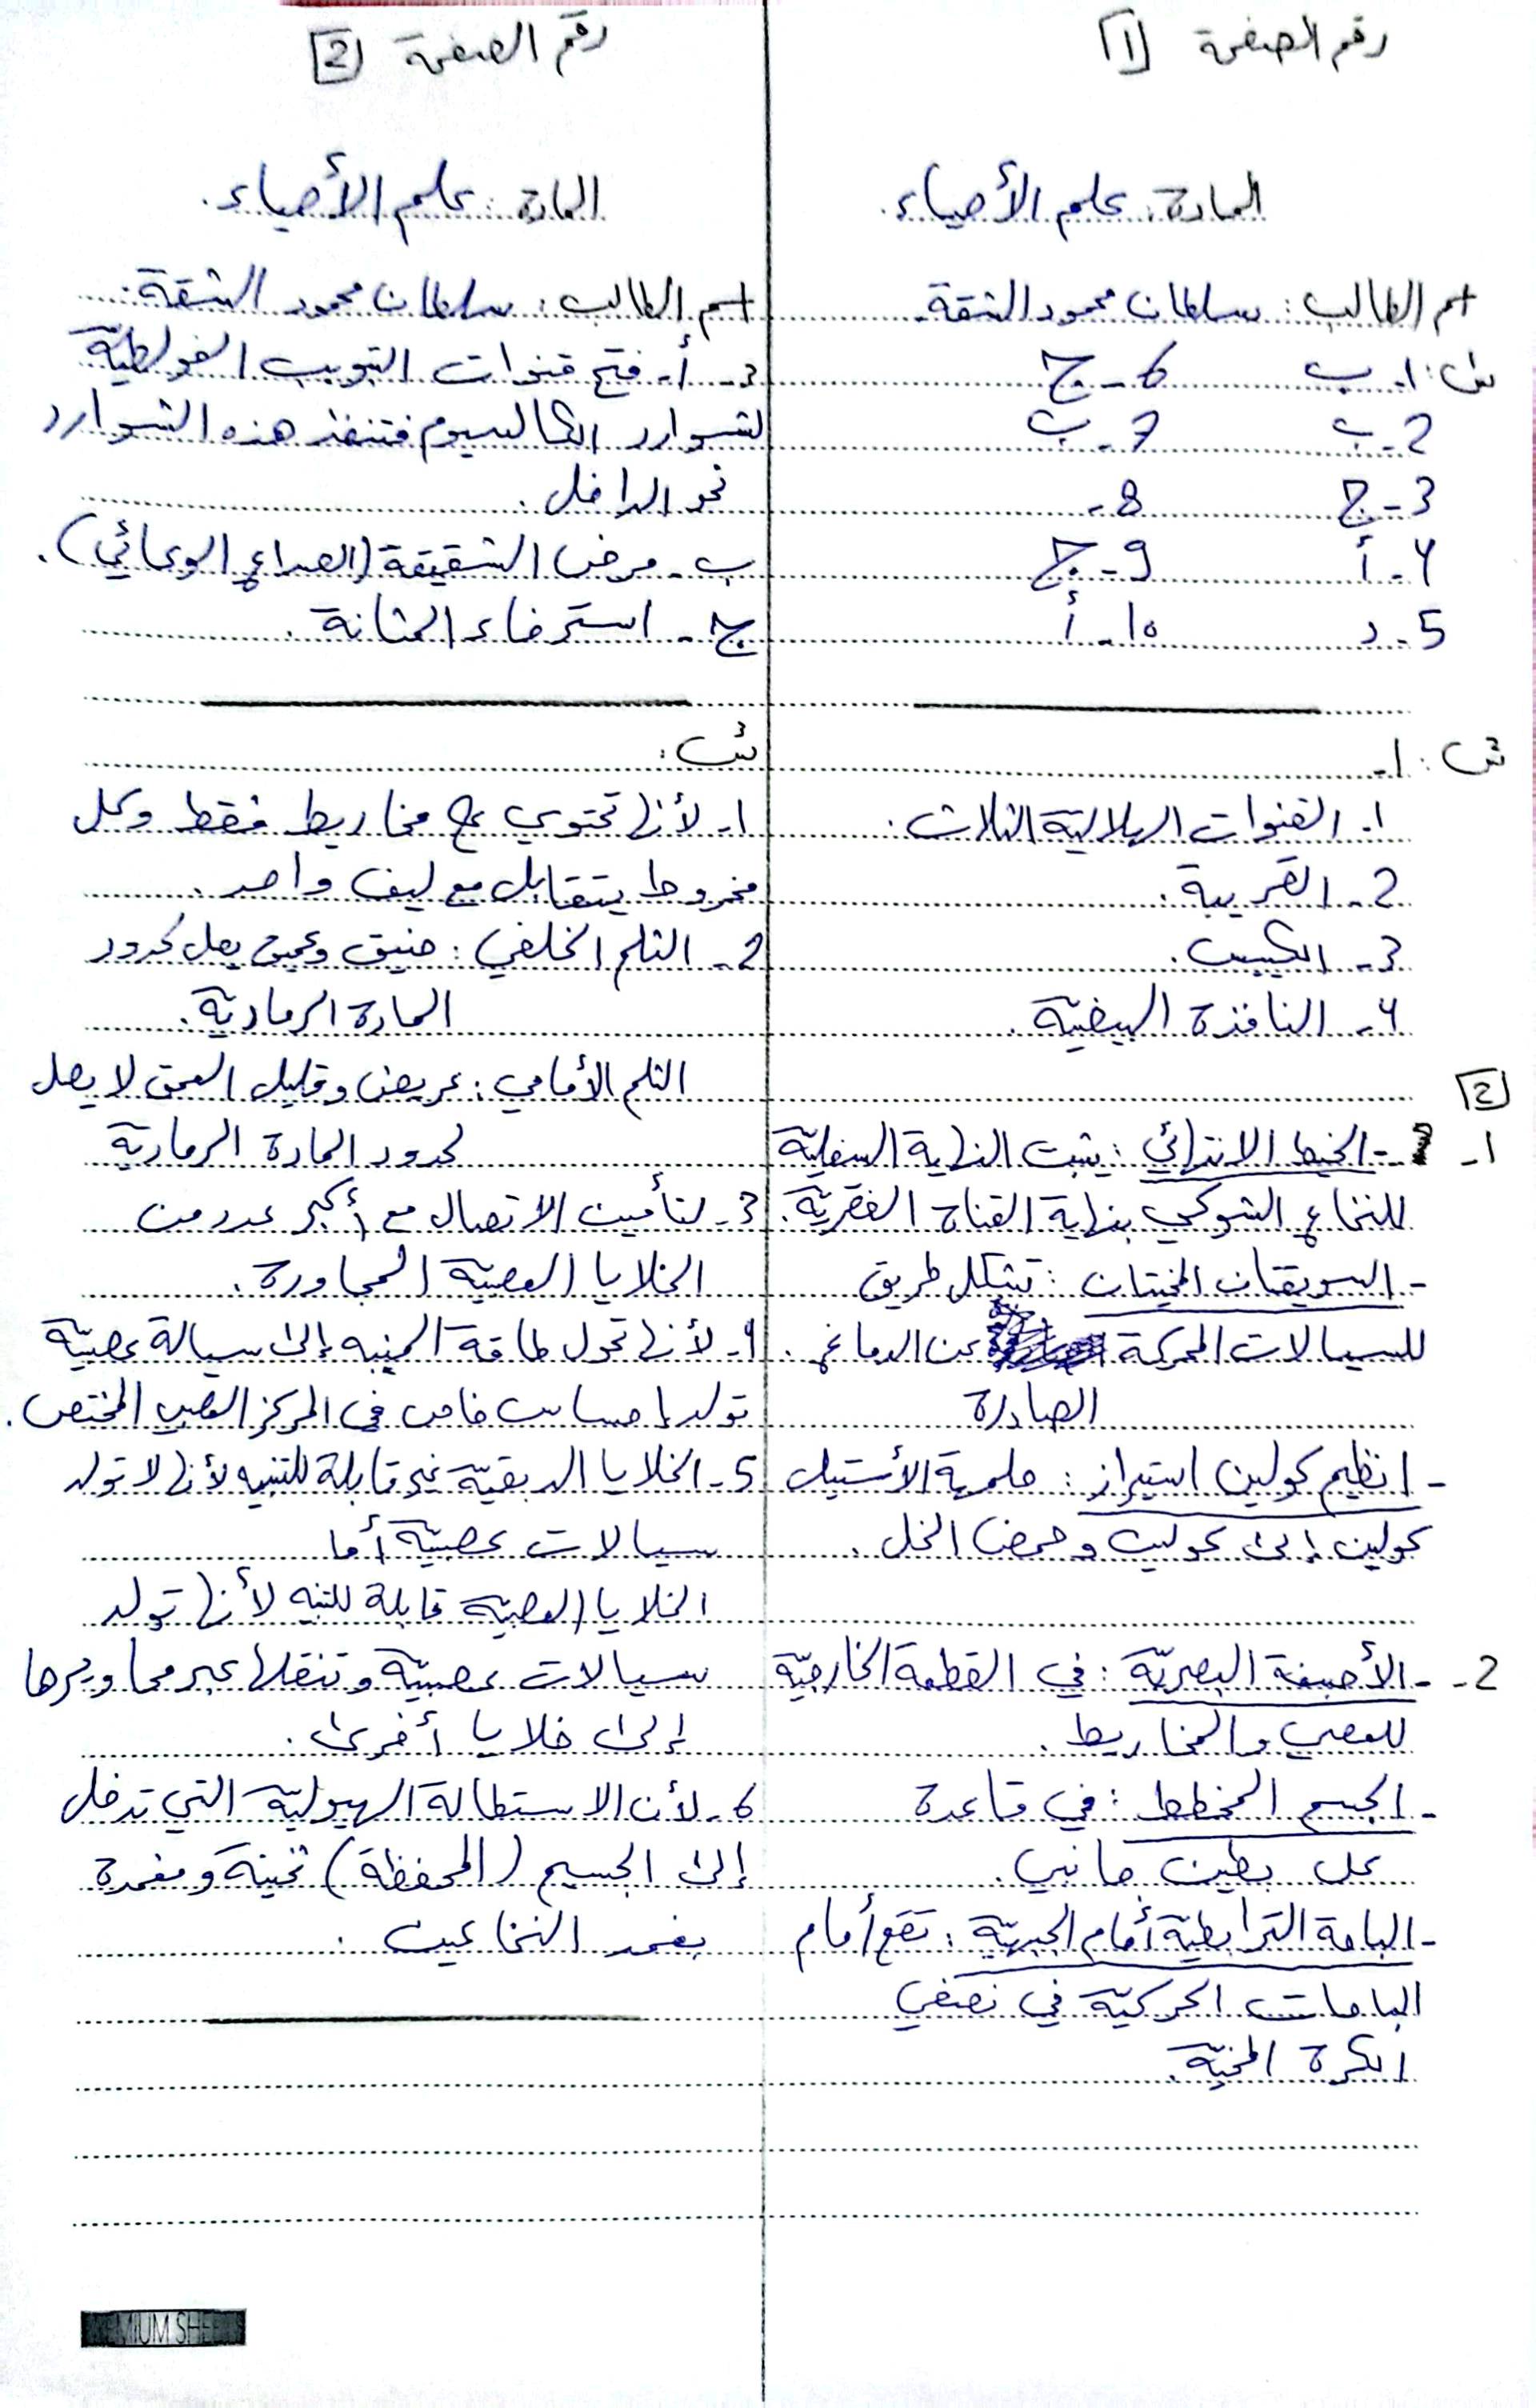 رقم الصفحة 1
المادة: علم الأحياء.
اسم الطالب: سلطان محمود الشقة.
س1: 1- ب 6- ج
2- ب 7- ب
3- ج 8-
4- أ 9- ج
5- د 10- أ
س2: 1-
1- القنوات الهلالية الثلاث.
2- القريبة.
3- الكييس.
4- النافذة البيضية.
2
1- - الخيط الانتهائي: يثبت النهاية السفلية
للنخاع الشوكي بنهاية القناة الفقرية.
- السويقتان المخيتان: تشكل طريق
للسيالات المحركة عن الدماغ.
الصادرة
- انظيم كولين استيراز: حلمهة الأستيل
كولين إلى كولين وحمض الخل.
2- - الأصبغة البصريّة: في القطعة الخارجيّة
للعصي والمخاريط.
- الجسم المخطط: في قاعدة
كل بطين جانبي.
- الباحة الترابطيّة أمام الجبهيّة: تقع أمام
الباحات الحركيّة في نصفي
الكرة المخيّة.
رقم الصفحة 2
المادة: علم الأحياء.
اسم الطالب: سلطان محمود الشقة.
3- أ- فتح قنوات التبويب الفولطيّة
لشوارد الكالسيوم فتنفذ هذه الشوارد
نحو الداخل.
ب- مرض الشقيقة (الصداع الوعائي).
ج- استرخاء المثانة.
س3:
1- لأنها تحتوي ع مخاريط فقط وكل
مخروط يتقابل مع ليف واحد.
2- الثلم الخلفي: ضيق وعميق يصل لحدود
المادة الرماديّة.
الثلم الأمامي: عريض وقليل العمق لا يصل
لحدود المادة الرماديّة
3- لتأمين الاتصال مع أكبر عدد من
الخلايا العصبيّة المجاورة.
4- لأنها تحول طاقة المنبه إلى سيالة عصبيّة
تولد إحساس خاص في المركز العصبي المختص.
5- الخلايا الدبقيّة غير قابلة للتنبيه لأنها لا تولد
سيالات عصبيّة أما
الخلايا العصبيّة قابلة للتنبه لأنها تولد
سيالات عصبيّة وتنقلها عبر محاويرها
إلى خلايا أخرى.
6- لأن الاستطالة الهيوليّة التي تدخل
إلى الجسيم (المحفظة) ثخينة ومغمدة
بغمد النخاعين.